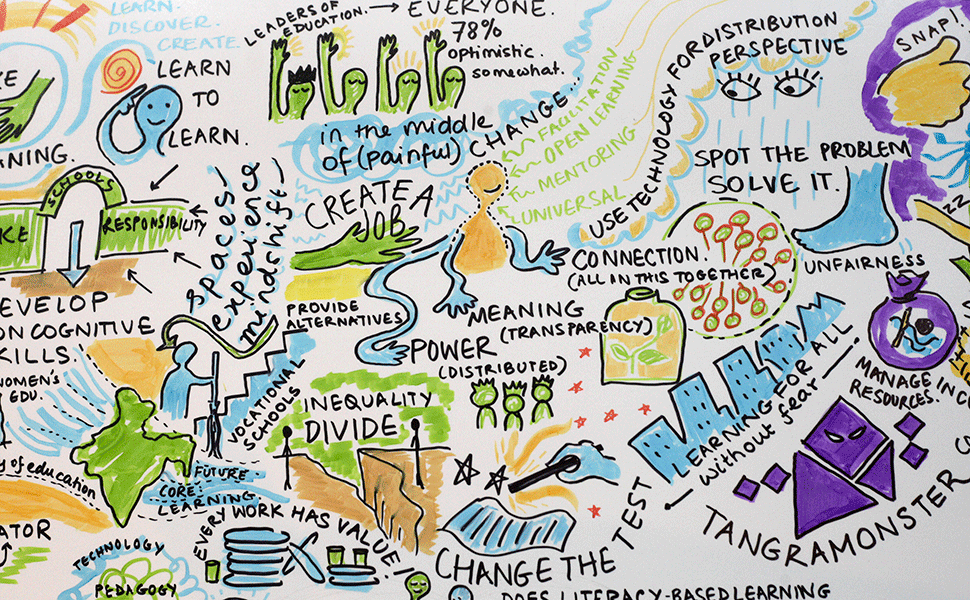 LEARN.
DISCOVER.
CREATE.
LEARN
TO
LEARN.
LEADERS OF
EDUCATION.
EVERYONE.
78%
optimistic.
somewhat.
in the middle
of (painful)
CHANGE...
FACILITATION
OPEN LEARNING
MENTORING
UNIVERSAL
USE TECHNOLOGY FOR
DISTRIBUTION
PERSPECTIVE
SNAP!
SPOT THE PROBLEM
SOLVE IT.
NING.
SCHOOLS
RESPONSIBILITY
spaces/
experience/
mindshift/
CREATE A
JOB
PROVIDE
ALTERNATIVES
CONNECTION.
(ALL IN THIS TOGETHER)
UNFAIRNESS
MEANING
(TRANSPARENCY)
POWER
(DISTRIBUTED)
EVELOP
ON COGNITIVE
KILLS
WOMEN'S
EDU.
VOCATIONAL
SCHOOLS
INEQUALITY
DIVIDE
LEARNING FOR ALL
without fear
MANAGE IN C
RESOURCES.
y of education
FUTURE
CORE:
LEARNING
EVERY WORK HAS VALUE!
ATOR
TECHNOLOGY
PEDAGOGY
CHANGE THE TEST
TANGRAMONSTER
DOES LITERACY-BASED LEARNING